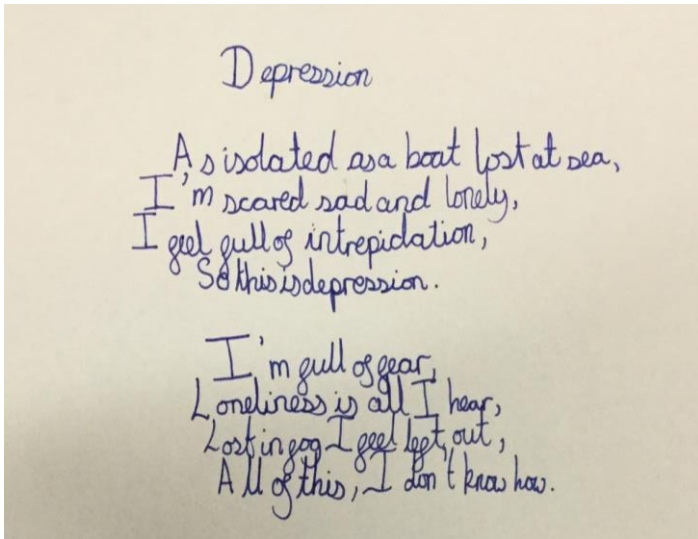 Depression
As isolated as a boat lost at sea,
I'm scared sad and lonely,
I feel full of intrepidation,
So this is depression.
I'm full of fear,
Loneliness is all I hear,
Lost in fog I feel left out,
All of this, I don't know how.